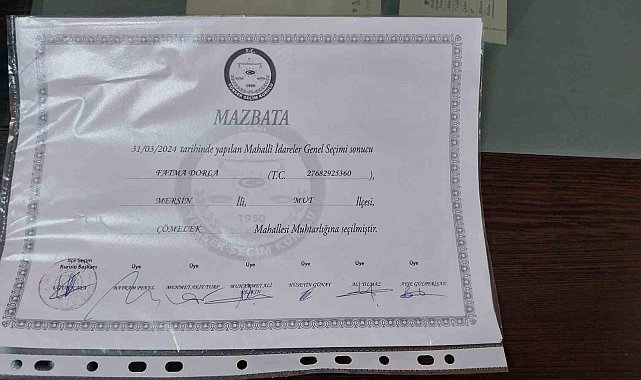 T.C.
1950
MAZBATA
31/03/2024 tarihinde yapılan Mahalli İdareler Genel Seçimi sonucu
FATMA DORLA (T.C. 27682925360 ),
MERSİN İli, MUT İlçesi,
ÇÖMELEK Mahallesi Muhtarlığına seçilmiştir.
İlçe Seçim Üye Üye Üye Üye Üye Üye
Kurulu Başkanı
BAYRAM PEKEL MEHMET AKİF TURP MUHAMMET ALİ HÜSEYİN GÜNAY ALİ YILMAZ AYŞE